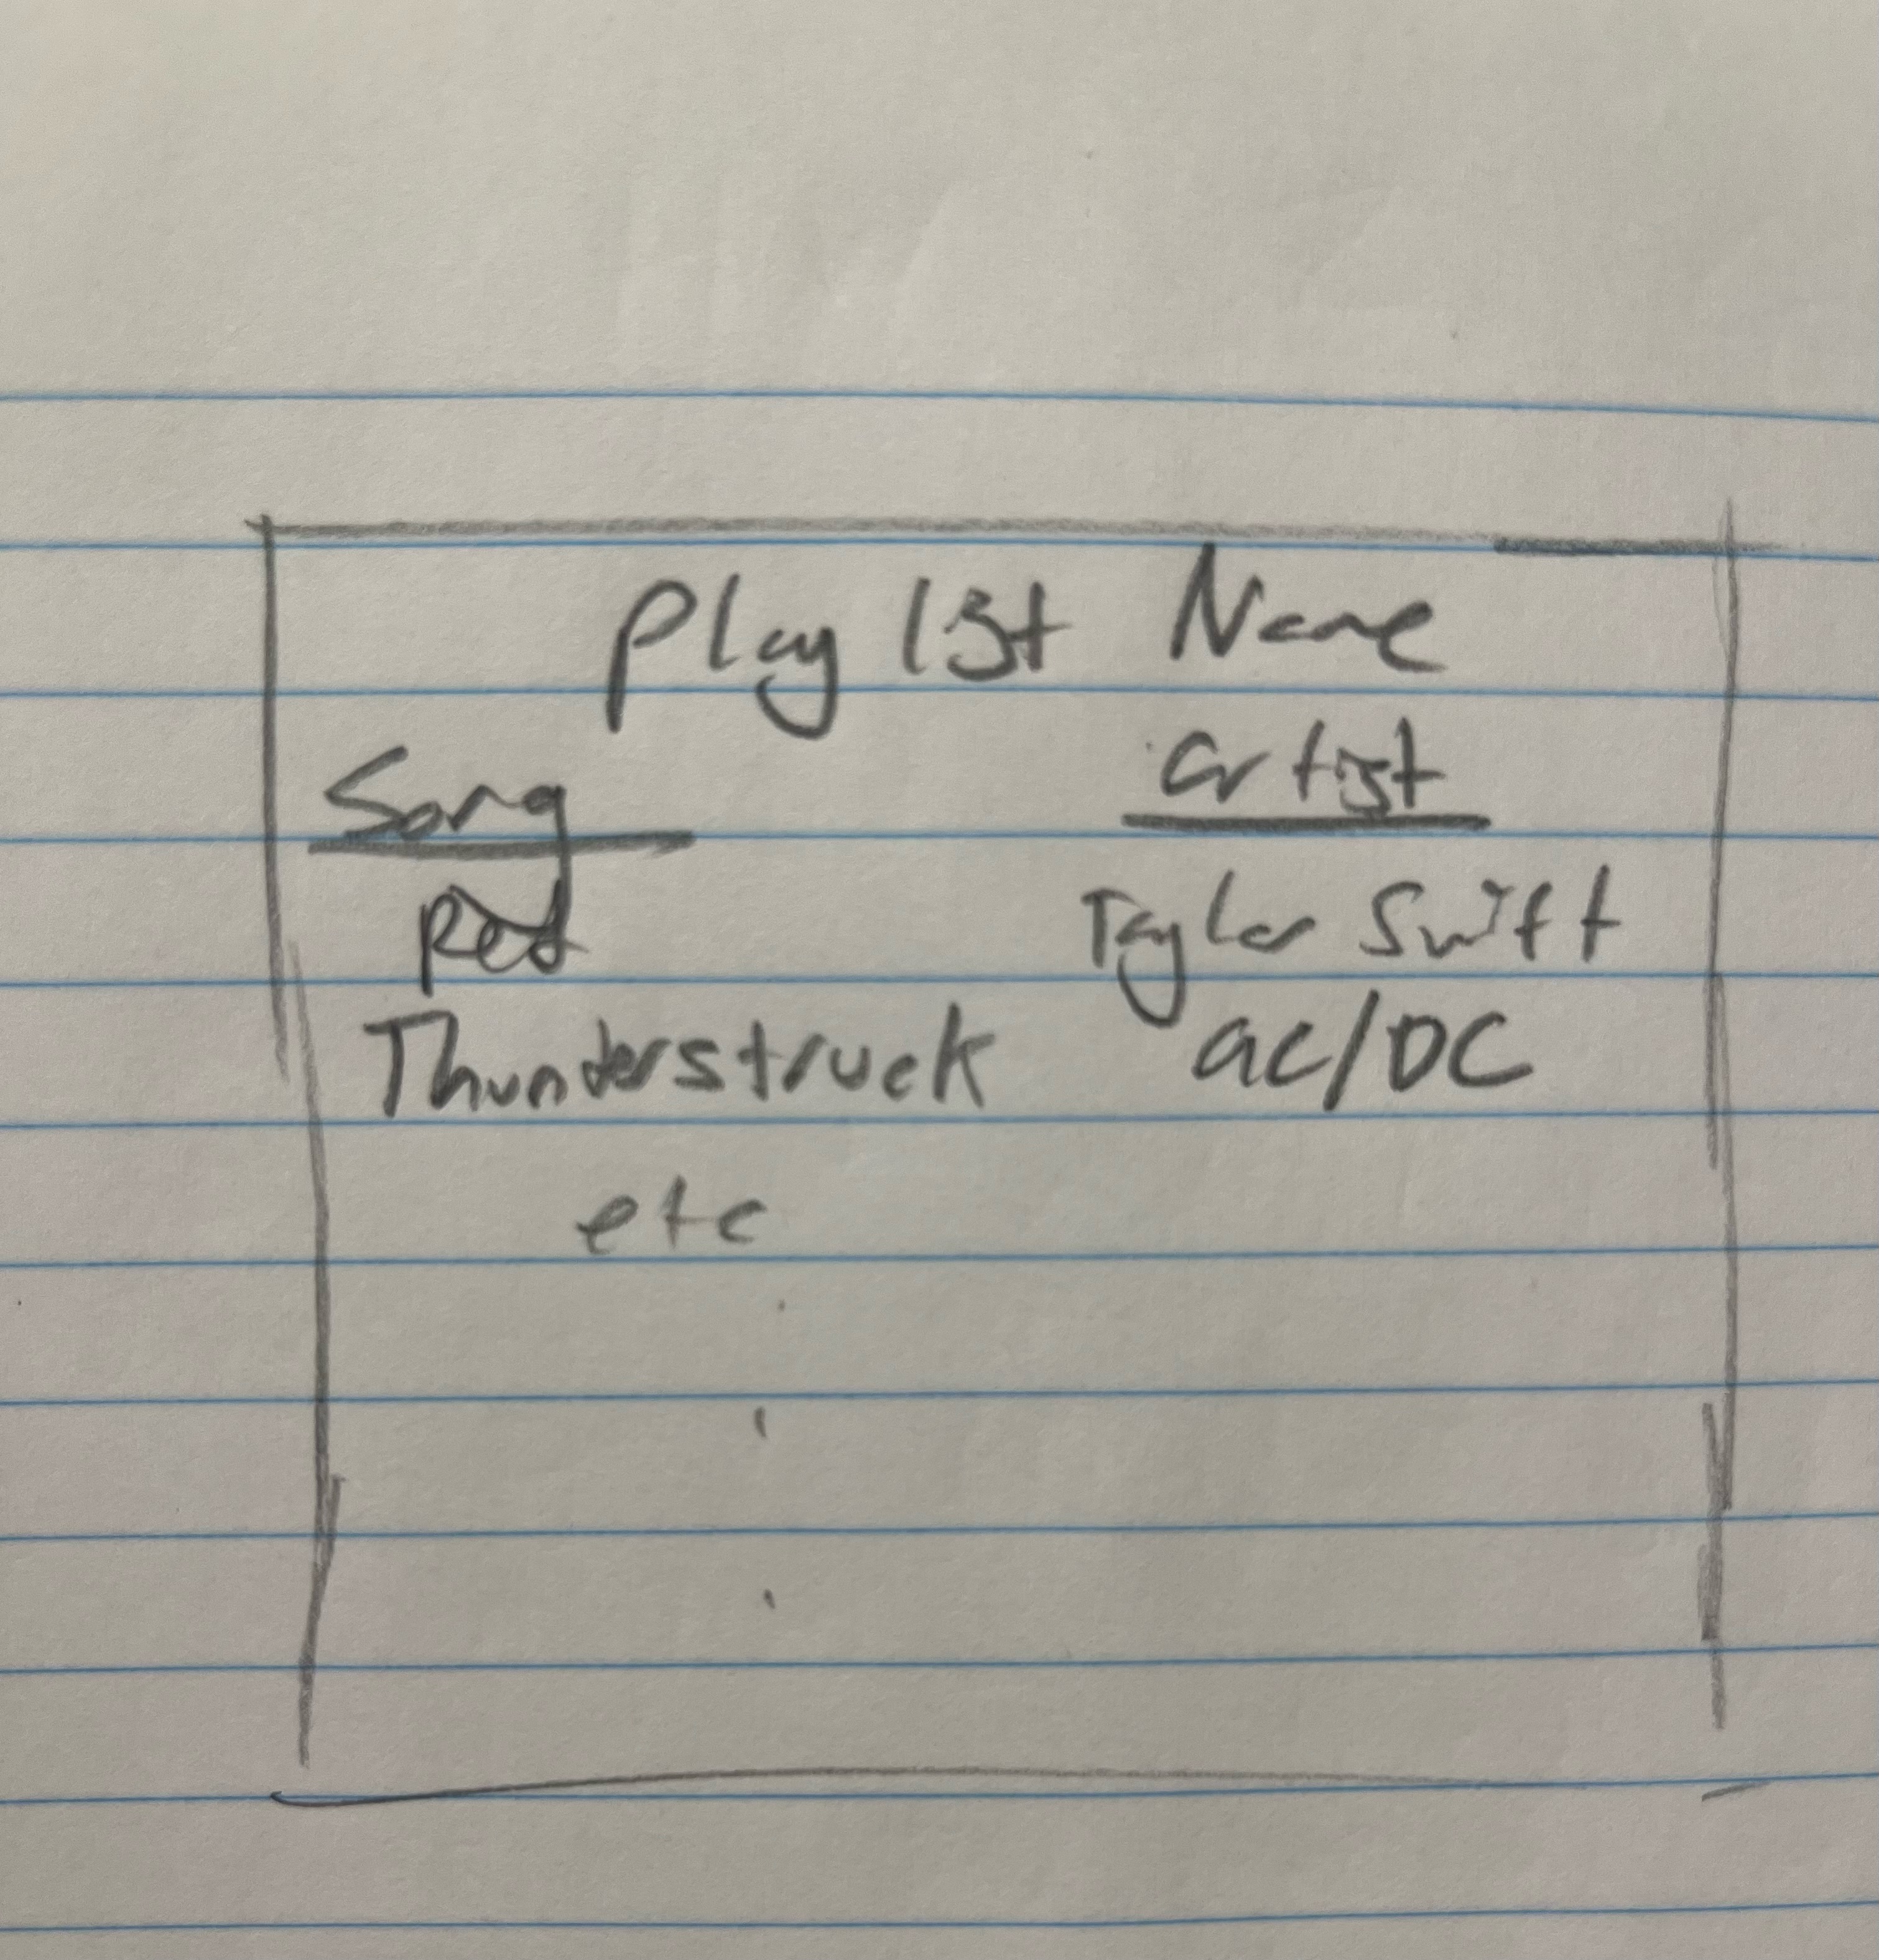 Playlist Name
Song artist
Red Taylor Swift
Thunderstruck ac/DC
etc